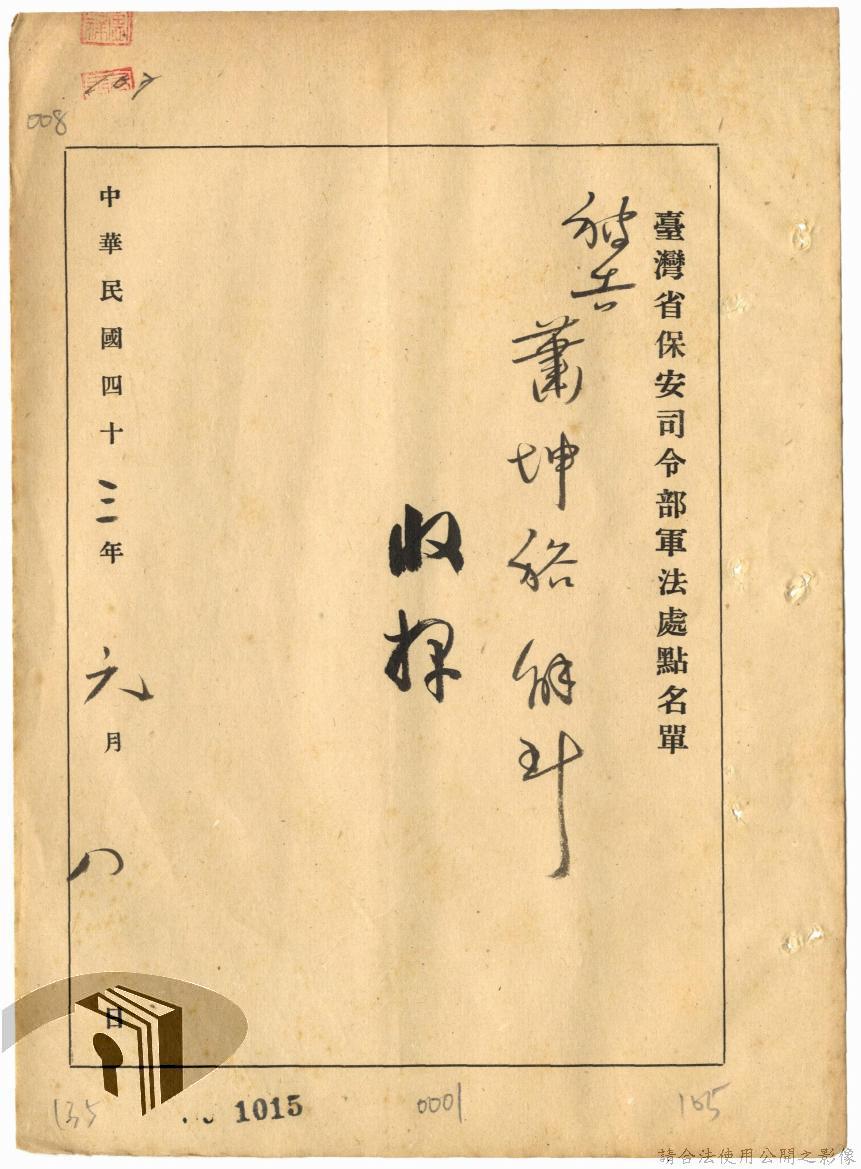 臺灣省保安司令部軍法處點名單
被告
蕭坤裕 解到
收押
中華民國四十三年元月八日
008
135
1015
0001
105
請合法使用公開之影像